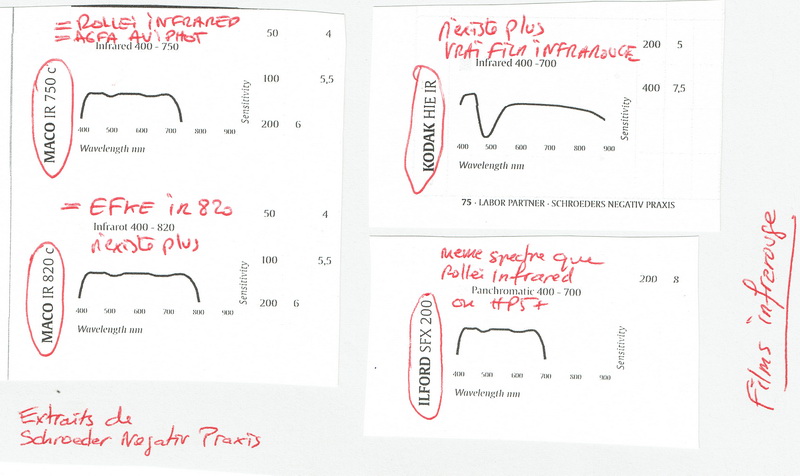 = ROLLEI INFRARED
= AGFA AVIPHOT
Infrared 400 - 750
MACO IR 750 c
50 4
100 5,5
200 6
Sensitivity
400 500 600 700 800 900
Wavelength nm
= EFKE IR 820
Infrarot 400 - 820
n'existe plus
MACO IR 820 c
50 4
100 5,5
200 6
Sensitivity
400 500 600 700 800 900
Wavelength nm
Extraits de
Schroeder Negativ Praxis
n'existe plus
VRAI FILM INFRAROUGE
Infrared 400 -700
KODAK HIE IR
200 5
400 7,5
Sensitivity
400 500 600 700 800 900
Wavelength nm
75 · LABOR PARTNER · SCHROEDERS NEGATIV PRAXIS
meme spectre que
Rollei Infrared
Panchromatic 400 - 700
ou HP5+
ILFORD SFX 200
200 8
Sensitivity
400 500 600 700 800 900
Wavelength nm
Films infrarouge